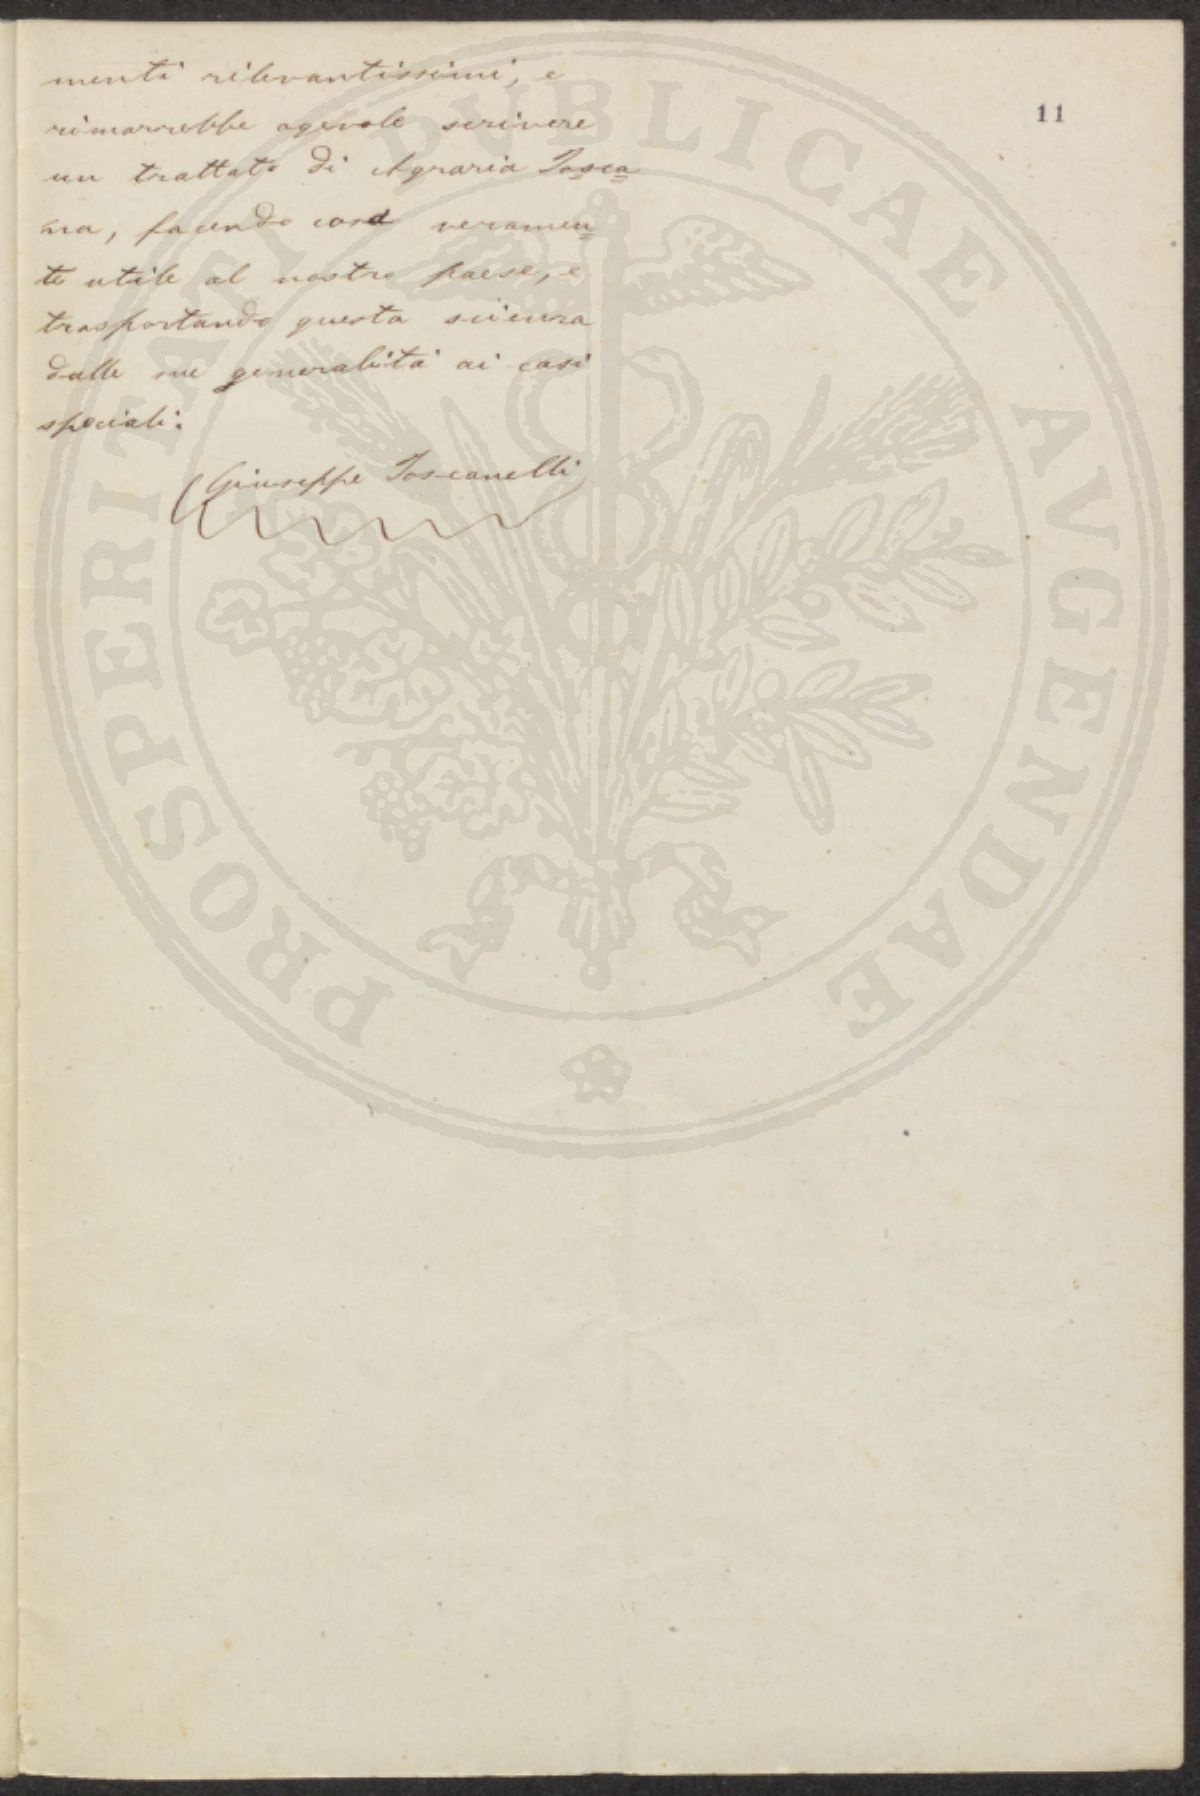 11
menti rilevantissimi, e
rimarrebbe agevole scrivere
un trattato di Agraria Tosca=
na, facendo cosa veramen=
te utile al nostro paese, e
trasportando questa scienza
dalle sue generalità ai casi
speciali.
Giuseppe Toscanelli
PROSPERITATI PUBLICAE AVGENDAE